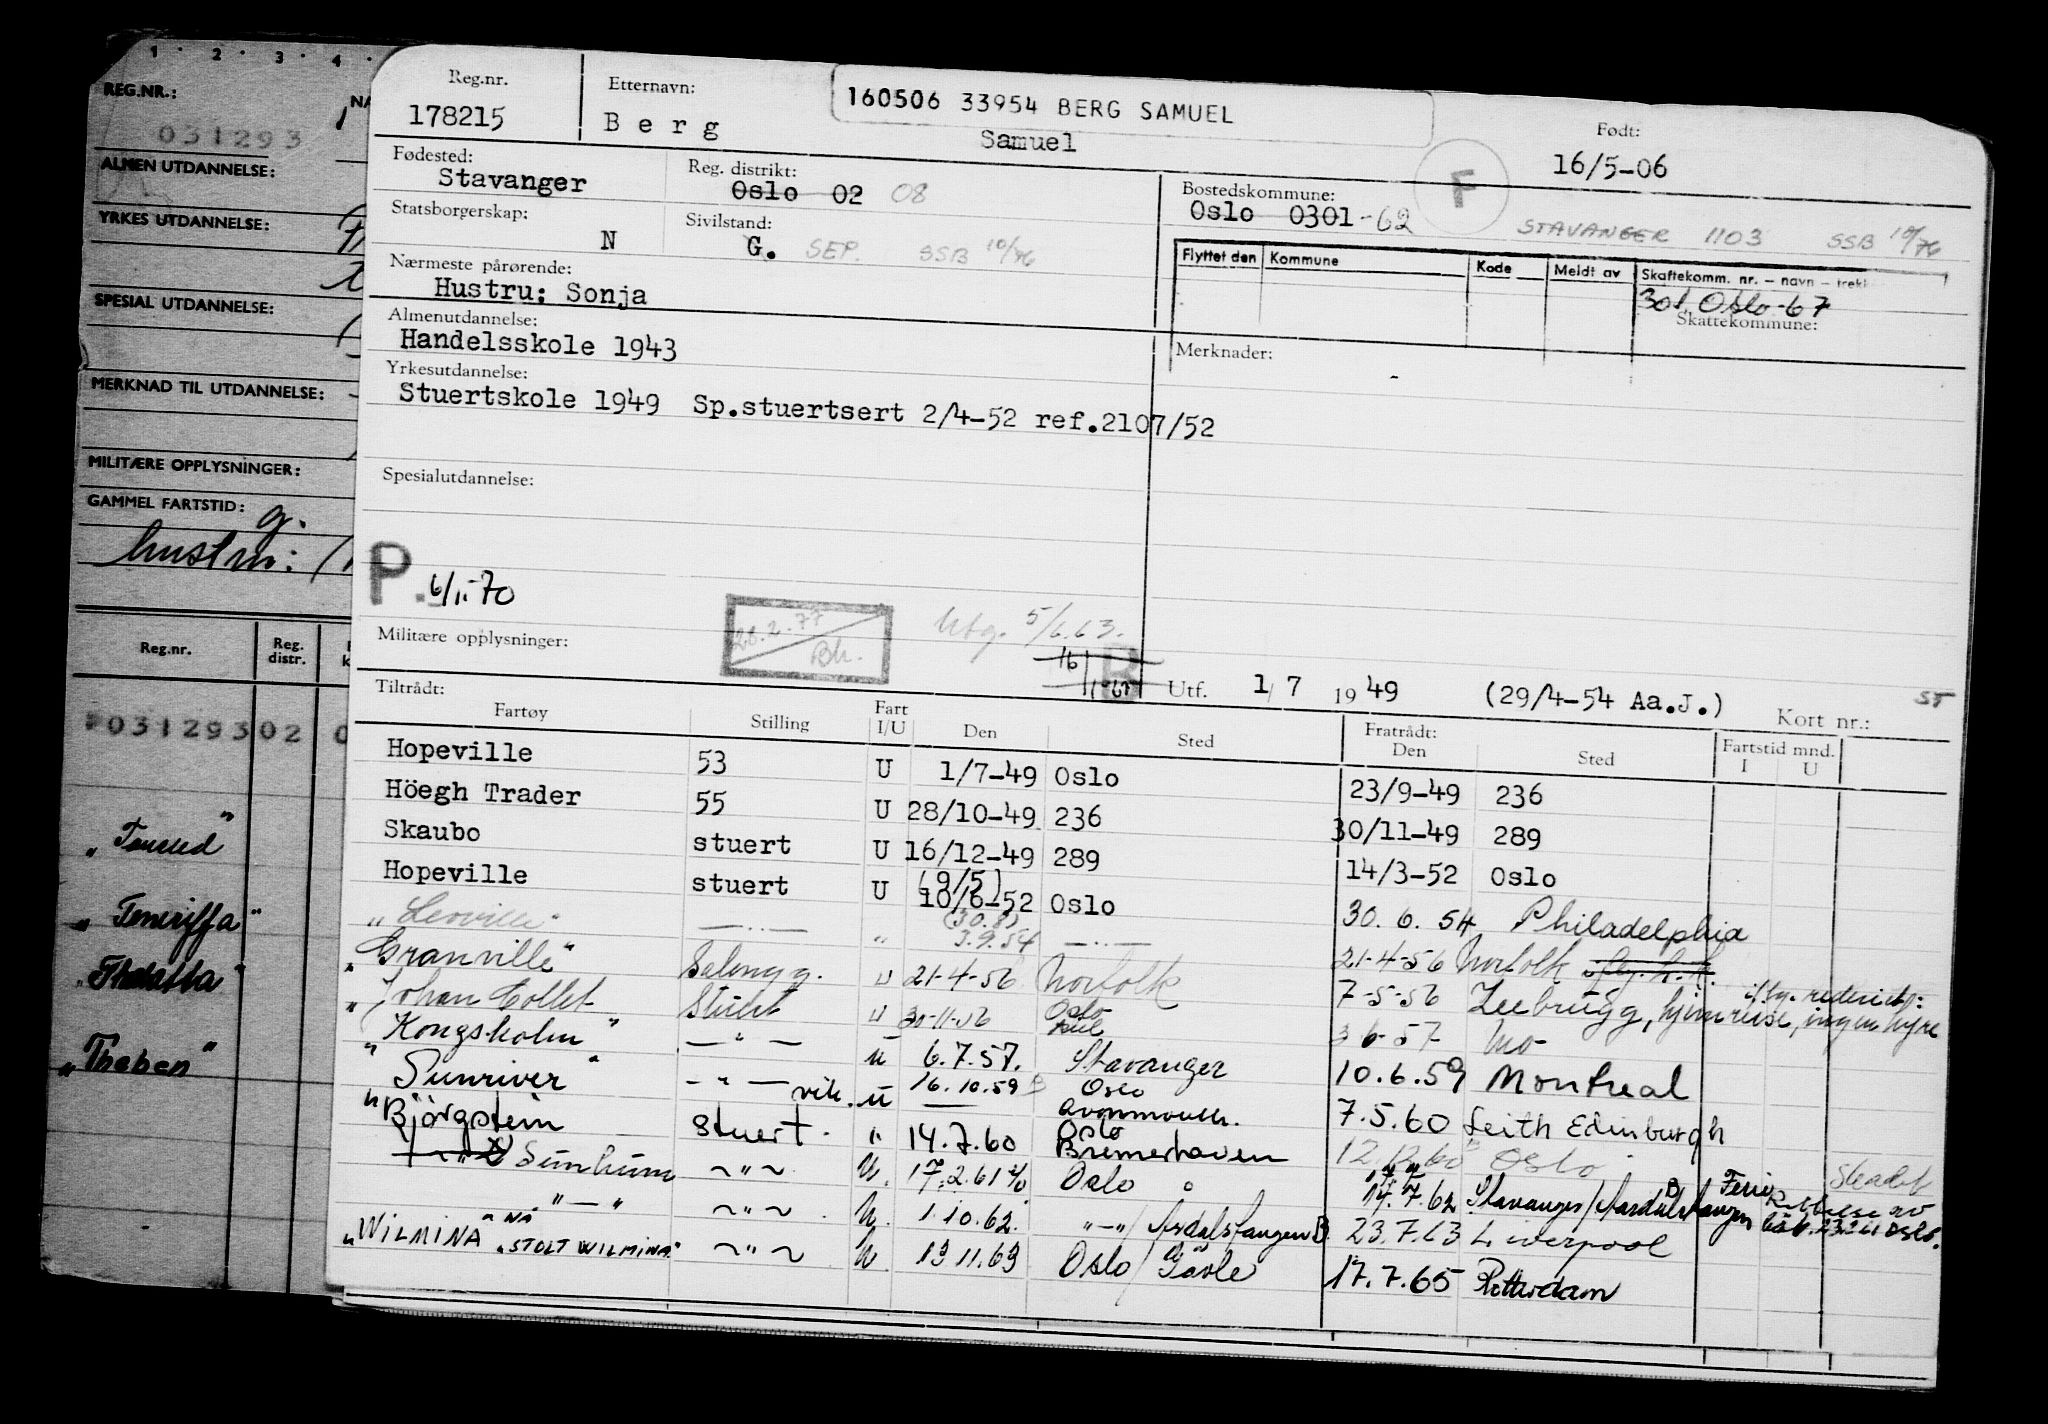 1 2 3 4
REG.NR.:
031293
ALMEN UTDANNELSE:
YRKES UTDANNELSE:
SPESIAL UTDANNELSE:
MERKNAD TIL UTDANNELSE:
MILITÆRE OPPLYSNINGER:
GAMMEL FARTSTID: g.
hustru:
Reg.nr. Reg. distr.
03129302
„Tanned"
„Teneriffa"
„Theben"
Reg.nr. 178215
Etternavn: Berg
160506 33954 BERG SAMUEL
Samuel
Født: 16/5-06
Fødested: Stavanger
Reg. distrikt: Oslo 02 08
Bostedskommune: Oslo 0301-62
F
STAVANGER 1103 SSB 10/76
Statsborgerskap: N
Sivilstand: G. SEP. SSB 10/76
Flyttet den Kommune Kode Meldt av Skattekomm. nr. – navn – trekk
301 Oslo-67
Skattekommune:
Nærmeste pårørende:
Hustru: Sonja
Almenutdannelse:
Handelsskole 1943
Merknader:
Yrkesutdannelse:
Stuertskole 1949 Sp.stuertsert 2/4-52 ref.2107/52
Spesialutdannelse:
P. 6/1-70
28.2.77 Bh.
Utg. 5/6.63.
16/1-67 B
Militære opplysninger:
Utf. 1/7 1949 (29/4-54 Aa.J.) Kort nr.: ST
Tiltrådt: Fartøy Stilling Fart I/U Den Sted Fratrådt: Den Sted Fartstid mnd. I U
Hopeville 53 U 1/7-49 Oslo 23/9-49 236
Höegh Trader 55 U 28/10-49 236 30/11-49 289
Skaubo stuert U 16/12-49 289 14/3-52 Oslo
Hopeville stuert U (9/5) 10/6-52 Oslo 30.6.54 Philadelphia
„Leoville" —..— „ (30.8) 3.9.54 —..— 21-4-56 Norfolk
„Granville" Salongg. U 21-4-56 Norfolk 7-5-56 Zeebrugg, hjemreise, ingen hyre
„Johan Collet Stuert U 30-11-56 Oslo 3-6-57 Mo
„Kongsholm" — " — U 6.7.57. Stavanger 10.6.59 Montreal
„Sunriver" — " — vik. U 16.10.59 Oslo Avonmouth. 7.5.60 Leith Edinburgh
"Björgstein stuert. „ 14.7.60 Oslo Bremerhaven 12.12.60 Oslo
Sunhum ~"~ U. 17.2.61 Oslo 14.7.62 Stavanger/Aardalstangen Ferie
" — " ~"~ U. 1.10.62. "—"/Årdalstangen B 23.7.63 Liverpool
„WILMINA" NÅ „STOLT WILMINA" ~"~ U. 13.11.63 Oslo/Gävle 17.7.65 Rotterdam